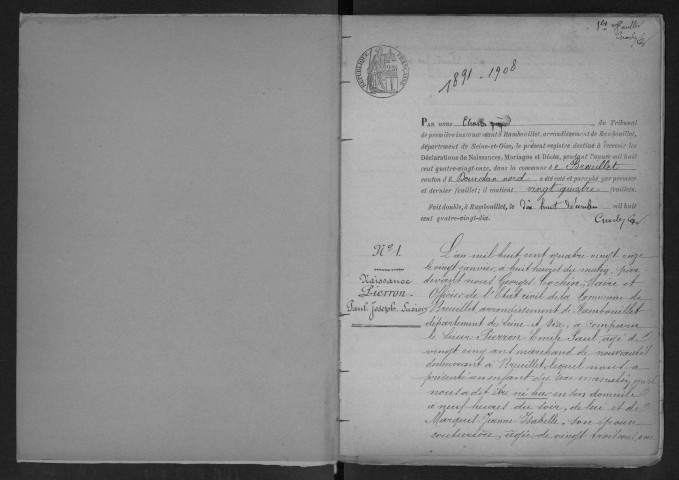 1er feuillet
RÉPUBLIQUE FRANÇAISE
1891-1908
PAR NOUS du Tribunal
de première instance séant à Rambouillet, arrondissement de Rambouillet,
département de Seine-et-Oise, le présent registre destiné à recevoir les
Déclarations de Naissances, Mariages et Décès, pendant l'année mil huit
cent quatre-vingt-onze, dans la commune de Breuillet
canton de Dourdan nord a été coté et paraphé par premier
et dernier feuillet; il contient vingt quatre feuillets.
Fait double, à Rambouillet, le dix huit décembre mil huit
cent quatre-vingt-dix.
No 1.
Naissance
Pierron
Paul Joseph Lucien
L'an mil huit cent quatre vingt onze
le vingt janvier, à huit heures du matin, par
devant nous Georges Cochin, Maire et
Officier de l'Etat civil de la Commune de
Breuillet arrondissement de Rambouillet
département de Seine et Oise, a comparu
le sieur Pierron Emile Paul, âgé de
vingt cinq ans marchand de nouveautés
demeurant à Breuillet, lequel nous a
présenté un enfant du sexe masculin, qu'il
nous a dit être né hier en son domicile
à neuf heures du soir, de lui et de
Marquet Jeanne Isabelle, son épouse
couturière, âgée de vingt trois ans,